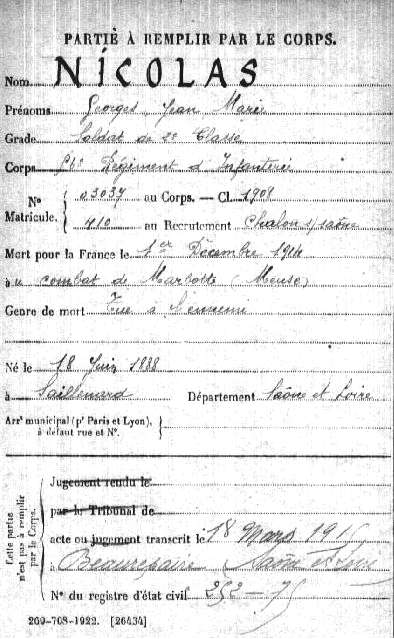 PARTIE À REMPLIR PAR LE CORPS.
Nom NICOLAS
Prénoms Georges Jean Marie
Grade Soldat de 2e Classe
Corps Régiment d'Infanterie
N° 03037 au Corps. — Cl. 1908
Matricule. 410 au Recutement Chalon s/saône
Mort pour la France le 1er Décembre 1914
au combat de Marbotte (Meuse)
Genre de mort Tué à l'ennemi
Né le 18 Juin 1888
à Saillenard Département Saône et Loire
Arrt municipal (pr Paris et Lyon),
à défaut rue et N°.
Cette partie
n'est pas à remplir
par le Corps.
Jugement rendu le
par le Tribunal de
acte ou jugement transcrit le 18 Mars 191
à Beaurepaire (Saône et Loire
N° du registre d'état civil 252 — 75
269-708-1922. [26434]